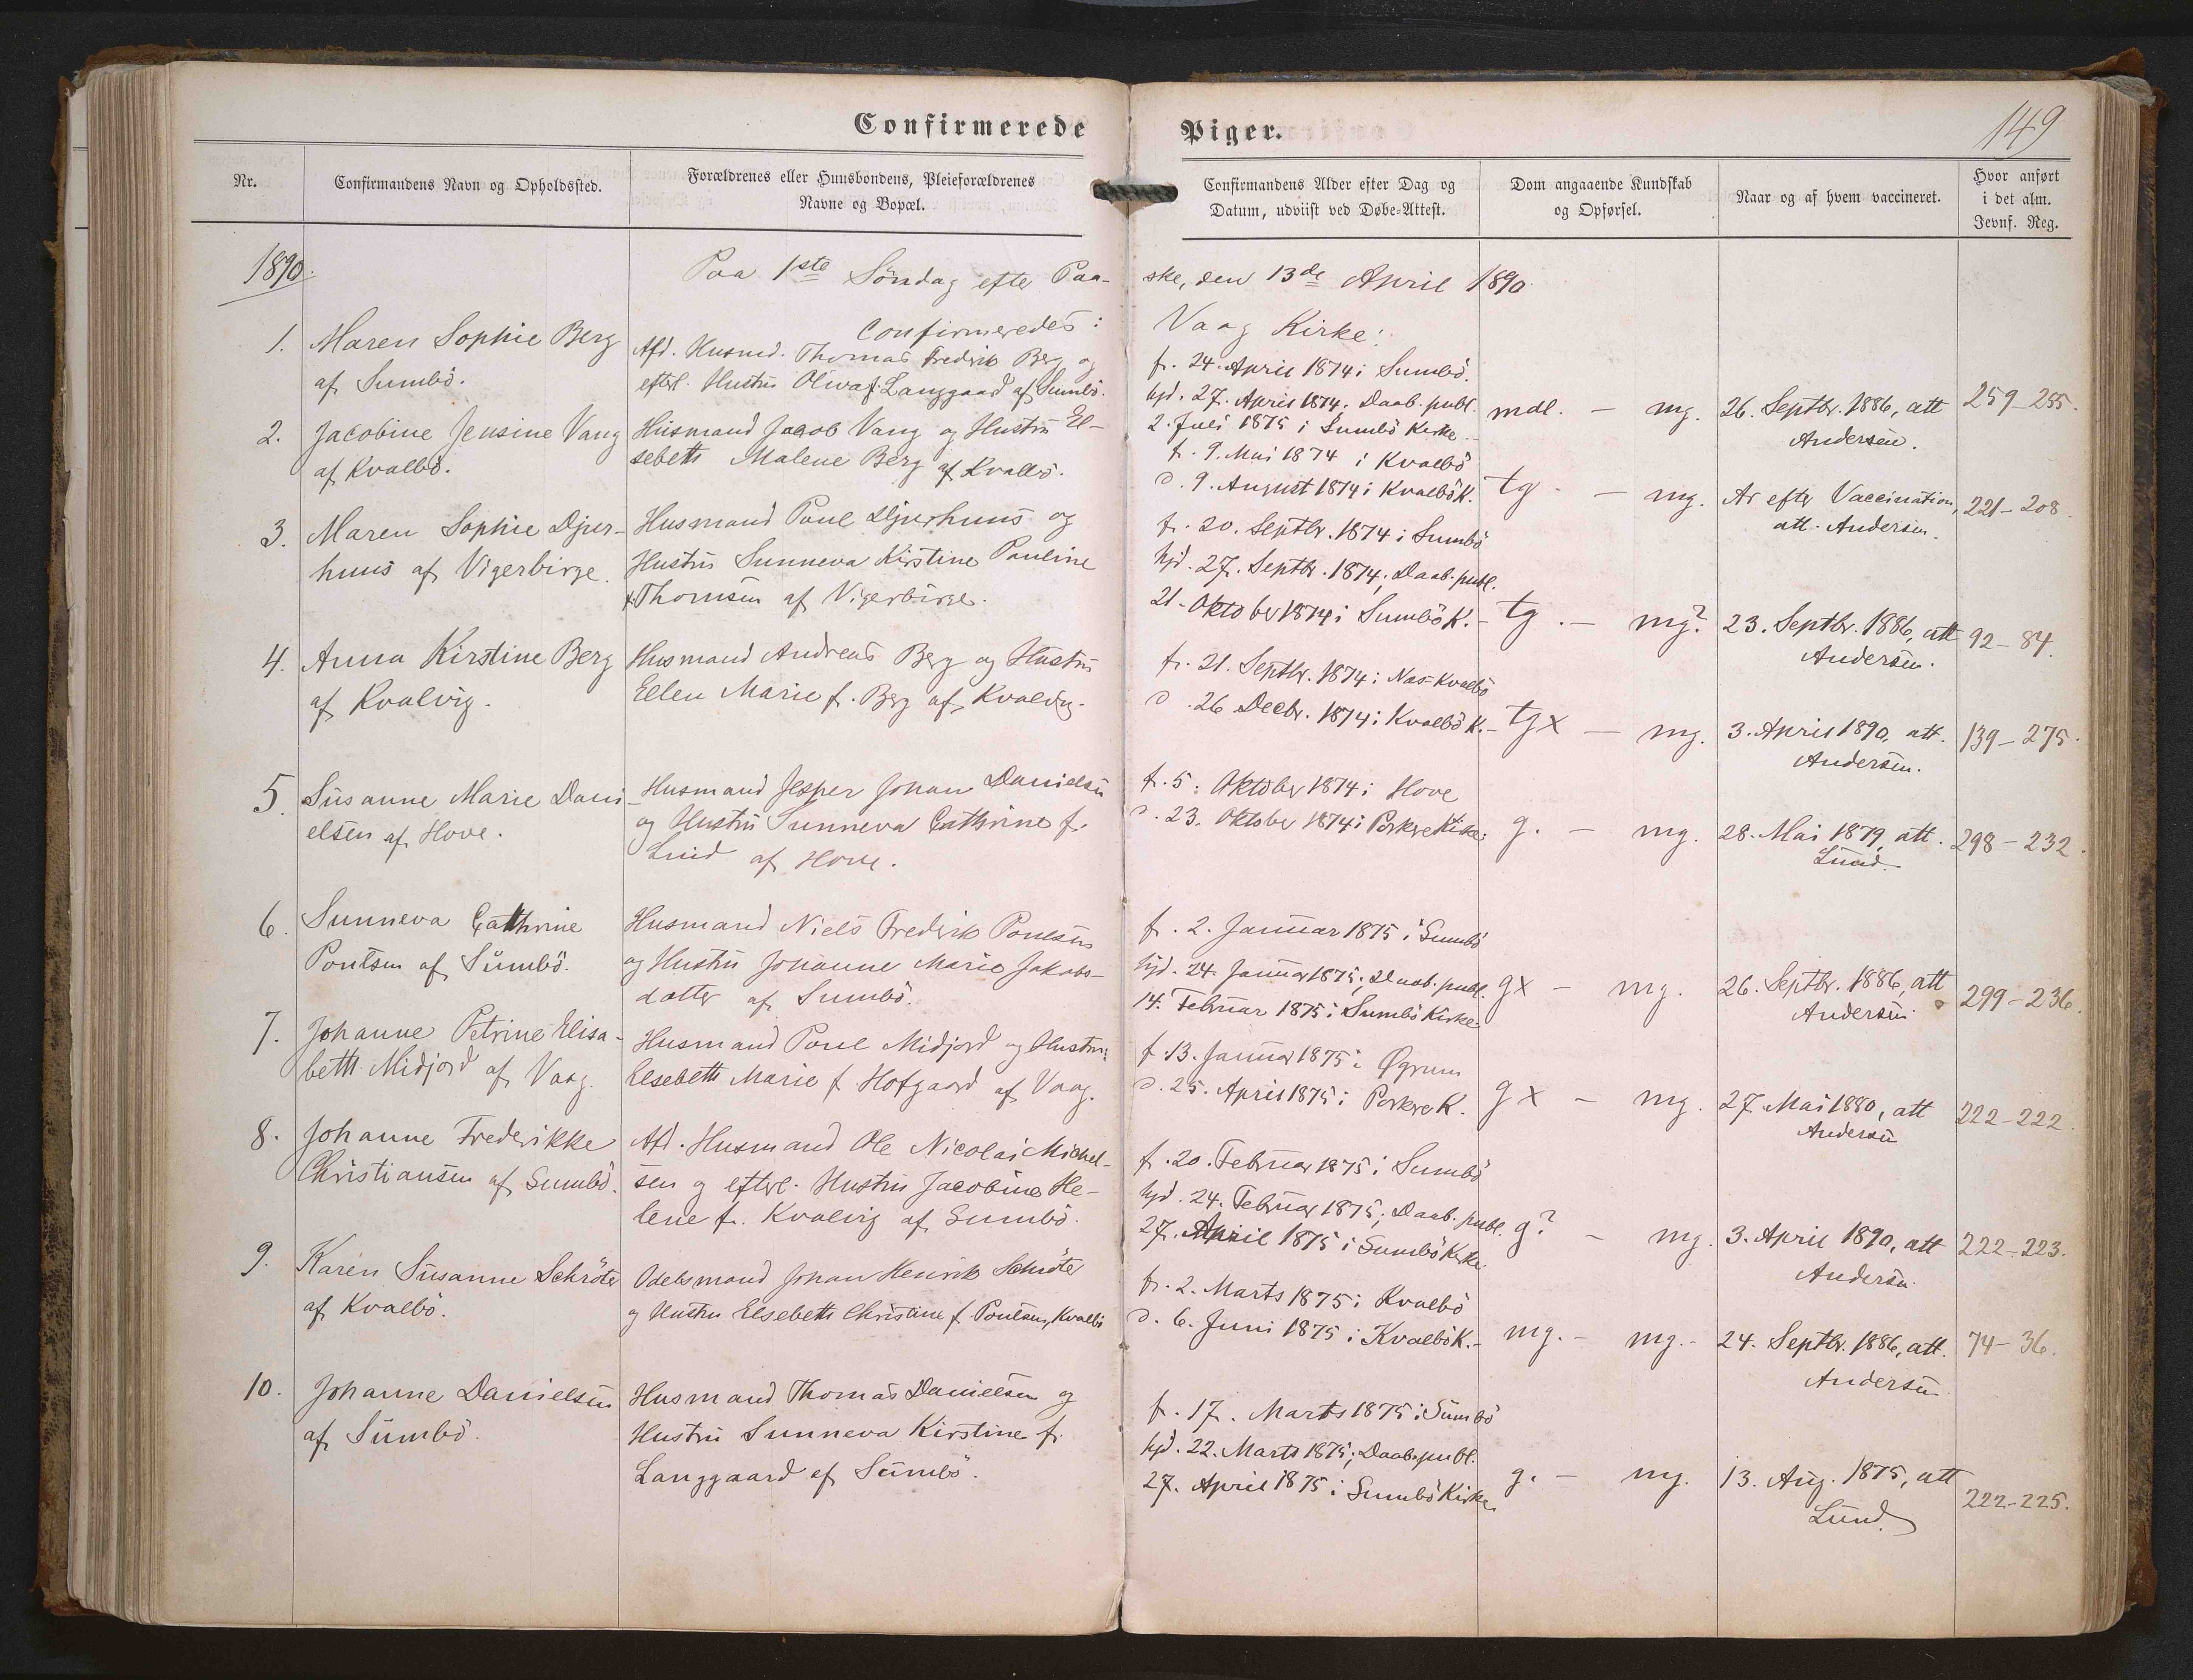 Confirmerede Piger.
149
Nr.
Confirmandens Navn og Opholdssted.
Forældrenes eller Huusbondens, Pleieforældrenes
Navne og Bopæl.
Confirmandens Alder efter Dag og
Datum, udviist ved Døbe-Attest.
Dom angaaende Kundskab
og Opførsel.
Naar og af hvem vaccineret.
Hvor anført
i det alm.
Jevnf. Reg.
1890.
Paa 1ste Söndag efter Paa-
ske, den 13de April 1890
Confirmeredes i
Vaag Kirke:
1. Maren Sophie Berg
af Sumbö.
Afd. Husmd. Thomas Fredrik Berg og
efterl. Hustru Oliva f. Langgaard af Sumbö.
f. 24. April 1874 i Sumbö.
hjd. 27. April 1874. Daab. publ.
2. Juli 1875 i Sumbö Kirke
mdl. - mg.
26. Septbr. 1886, att
Andersen.
259-255.
2. Jacobine Jensine Vang
af Kvalbö.
Husmand Jacob Vang og Hustru El-
sebeth Malene Berg af Kvalbö.
f. 9. Mai 1874 i Kvalbö
d. 9. August 1874 i Kvalbö K.
tg - mg.
Ar efter Vaccination,
att. Andersen.
221-208.
3. Maren Sophie Djur-
huus af Vigerbirge.
Husmand Poul Djurhuus og
Hustru Sunneva Kirstine Pouline
f. Thomsen af Vigerbirge.
f. 20. Septbr. 1874 i Sumbö
hjd. 27. Septbr. 1874; Daab. publ.
21. Oktober 1874 i Sumbö K.
tg. - mg?
23. Septbr. 1886, att
Andersen.
92-84.
4. Anna Kirstine Berg
af Kvalvig.
Husmand Andreas Berg og Hustru
Ellen Marie f. Berg af Kvalvig.
f. 21. Septbr. 1874 i Nas-Kvalbö
d. 26 Decbr. 1874 i Kvalbö K.
tgx - mg.
3. April 1890, att.
Andersen.
139-275.
5. Susanne Marie Dani-
elsen af Hove.
Husmand Jesper Johan Danielsen
og Hustru Sunneva Cathrine f.
Lund af Hove.
f. 5. Oktober 1874 i Hove
d. 23. Oktober 1874 i Porkere Kirke.
g. - mg.
28. Mai 1879, att.
Lund.
298-232.
6. Sunneva Cathrine
Poulsen af Sumbö.
Husmand Niels Fredrik Poulsen
og Hustru Johanne Marie Jakobs-
datter af Sumbö.
f. 2. Januar 1875 i Sumbö
hjd. 24. Januar 1875; Daab. publ.
14. Februar 1875 i Sumbö Kirke.
gx - mg.
26. Septbr. 1886, att
Andersen.
299-236.
7. Johanne Petrine Elisa-
beth Midjord af Vaag.
Husmand Poul Midjord og Hustru
Elsebeth Marie f. Hofgaard af Vaag.
f. 13. Januar 1875 i Øgrum
d. 25. April 1875 i Porkere K.
gx - mg.
27 Mai 1880, att
Andersen
222-222.
8. Johanne Frederikke
Christiansen af Sumbö.
Afd. Husmand Ole Nicolai Michel-
sen og efterl. Hustru Jacobine He-
lene f. Kvalvig af Sumbö.
f. 20. Februar 1875 i Sumbö
hjd. 24. Februar 1875; Daab. publ.
27. April 1875 i Sumbö Kirke.
g? - mg.
3. April 1890, att
Andersen.
222-223.
9. Karen Susanne Schröter
af Kvalbö.
Odelsmand Johan Henrik Schröter
og Hustru Elsebeth Christine f. Poulsen, Kvalbö
f. 2. Marts 1875 i Kvalbö
d. 6. Juni 1875 i Kvalbö K.
mg. - mg.
24. Septbr. 1886, att.
Andersen
74-36.
10. Johanne Danielsen
af Sumbö.
Husmand Thomas Danielsen og
Hustru Sunneva Kirstine f.
Langgaard af Sumbö.
f. 17. Marts 1875 i Sumbö
hjd. 22. Marts 1875; Daab. publ.
27. April 1875 i Sumbö Kirke
g. - mg.
13. Aug. 1875, att
Lund.
222-225.